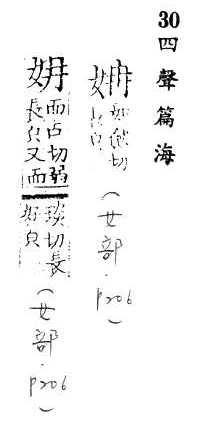 30四聲篇海
姌如儉切長皃(女部.P206)
㚩而占切弱長皃又而琰切長好皃(女部.P206)